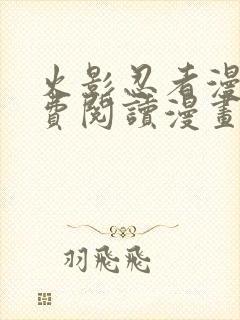 火影忍者漫
費閱讀漫畫
羽飛飛